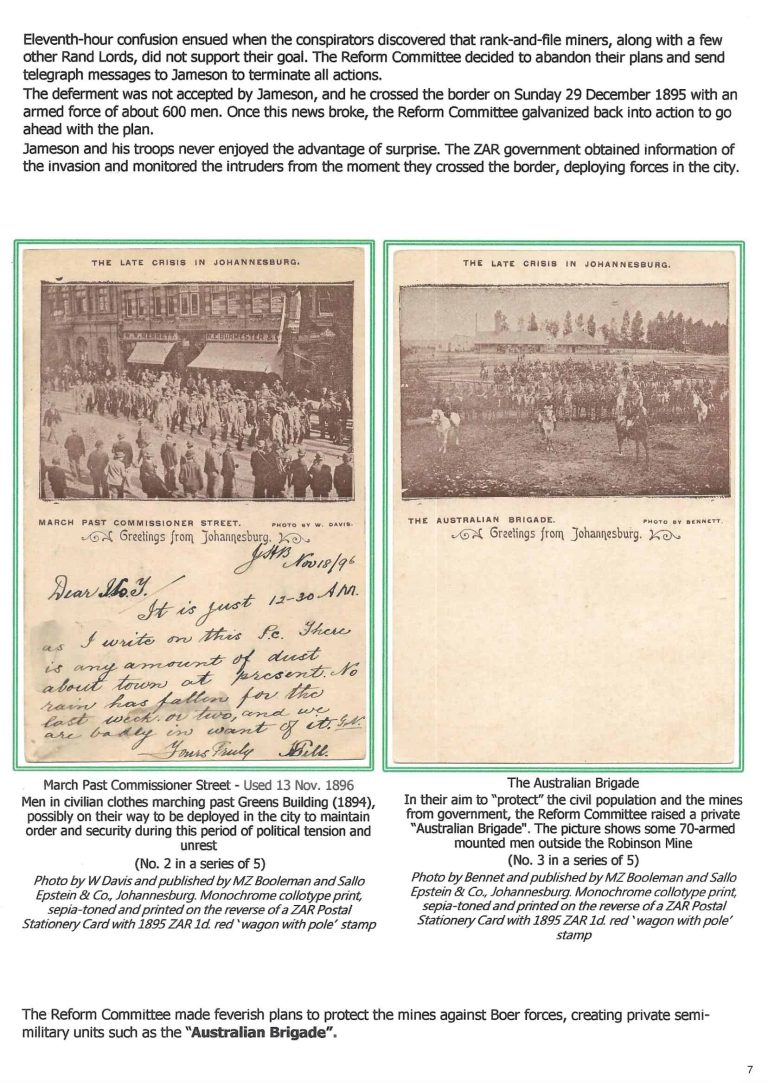 Eleventh-hour confusion ensued when the conspirators discovered that rank-and-file miners, along with a few
other Rand Lords, did not support their goal. The Reform Committee decided to abandon their plans and send
telegraph messages to Jameson to terminate all actions.
The deferment was not accepted by Jameson, and he crossed the border on Sunday 29 December 1895 with an
armed force of about 600 men. Once this news broke, the Reform Committee galvanized back into action to go
ahead with the plan.
Jameson and his troops never enjoyed the advantage of surprise. The ZAR government obtained information of
the invasion and monitored the intruders from the moment they crossed the border, deploying forces in the city.
THE LATE CRISIS IN JOHANNESBURG.
MARCH PAST COMMISSIONER STREET. PHOTO BY W. DAVIS.
Greetings from Johannesburg.
JHB
Nov 18/96
Dear
It is just 12-30 A.M.
as I write on this P.c. There
is any amount of dust
about town at present. No
rain has fallen for the
last week or two, and we
are badly in want of it.
Yours Truly Bill.
March Past Commissioner Street - Used 13 Nov. 1896
Men in civilian clothes marching past Greens Building (1894),
possibly on their way to be deployed in the city to maintain
order and security during this period of political tension and
unrest
(No. 2 in a series of 5)
Photo by W Davis and published by MZ Booleman and Sallo
Epstein & Co., Johannesburg. Monochrome collotype print,
sepia-toned and printed on the reverse of a ZAR Postal
Stationery Card with 1895 ZAR 1d. red ‘wagon with pole’ stamp
THE LATE CRISIS IN JOHANNESBURG.
THE AUSTRALIAN BRIGADE. PHOTO BY BENNETT.
Greetings from Johannesburg.
The Australian Brigade
In their aim to “protect” the civil population and the mines
from government, the Reform Committee raised a private
“Australian Brigade". The picture shows some 70-armed
mounted men outside the Robinson Mine
(No. 3 in a series of 5)
Photo by Bennet and published by MZ Booleman and Sallo
Epstein & Co., Johannesburg. Monochrome collotype print,
sepia-toned and printed on the reverse of a ZAR Postal
Stationery Card with 1895 ZAR 1d. red ‘wagon with pole’
stamp
The Reform Committee made feverish plans to protect the mines against Boer forces, creating private semi-
military units such as the “Australian Brigade”.
7